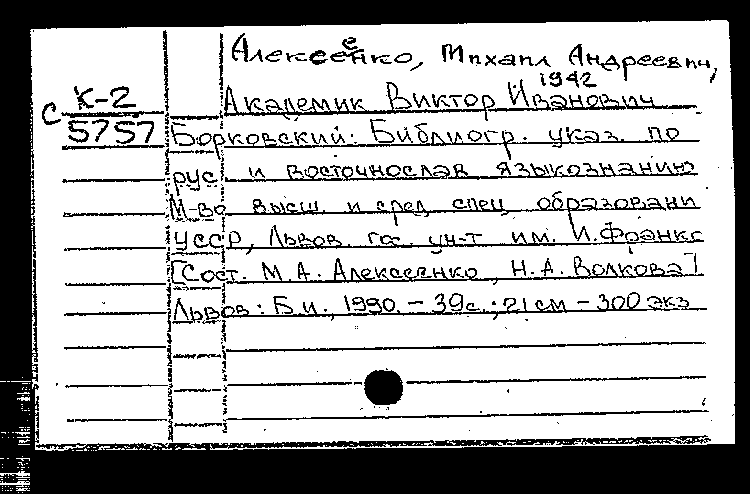 Алексеенко, Михаил Андреевич,
1942
С К-2
5757
Академик Виктор Иванович
Борковский: Библиогр. указ. по
рус. и восточнослав языкознанию
М-во высш. и сред спец образовани
УССР, Львов. гос. ун-т им. И. Франко
[Сост. М.А. Алексеенко, Н.А. Волкова]
Львов: Б.и., 1990. - 39с.; 21 см - 300 экз